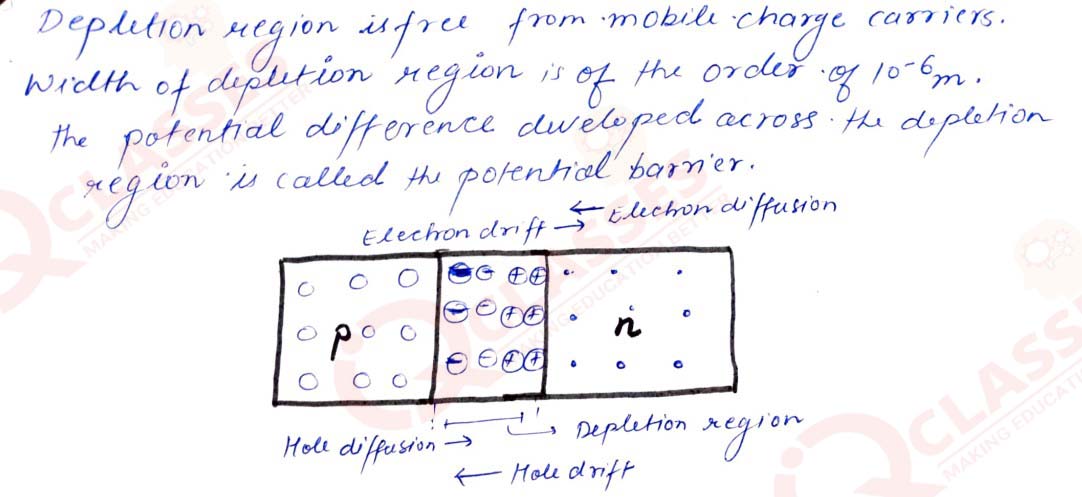 Depletion region is free from mobile charge carriers.
Width of depletion region is of the order of 10⁻⁶m.
The potential difference developed across the depletion
region is called the potential barrier.
← Electron diffusion
Electron drift →
p
n
Hole diffusion →
Depletion region
← Hole drift
QCLASSES
MAKING EDUCATION BETTER